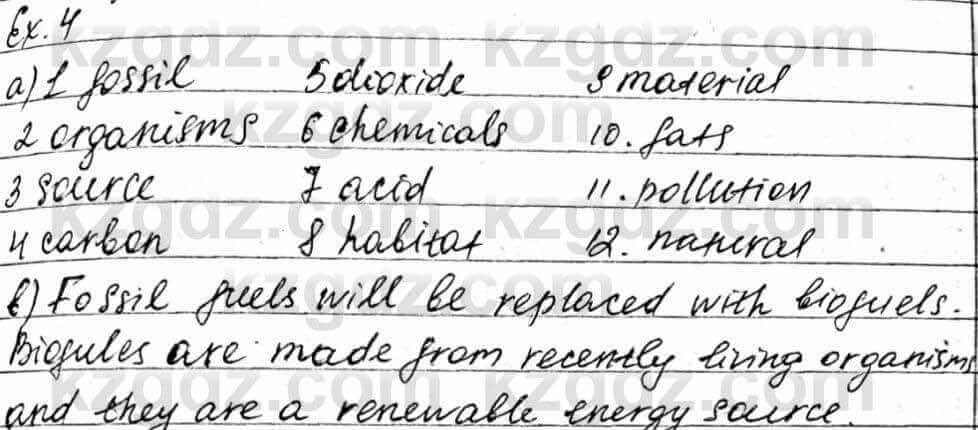 Ex. 4
a) 1 fossil 5 dioxide 9 material
2 organisms 6 chemicals 10. fats
3 source 7 acid 11. pollution
4 carbon 8 habitat 12. natural
b) Fossil fuels will be replaced with biofuels.
Biofules are made from recently living organism,
and they are a renewable energy source.
kzgdz.com kzgdz.com
kzgdz.com
kzgdz.com kzgdz.com
kzgdz.com
kzgdz.com kzgdz.com